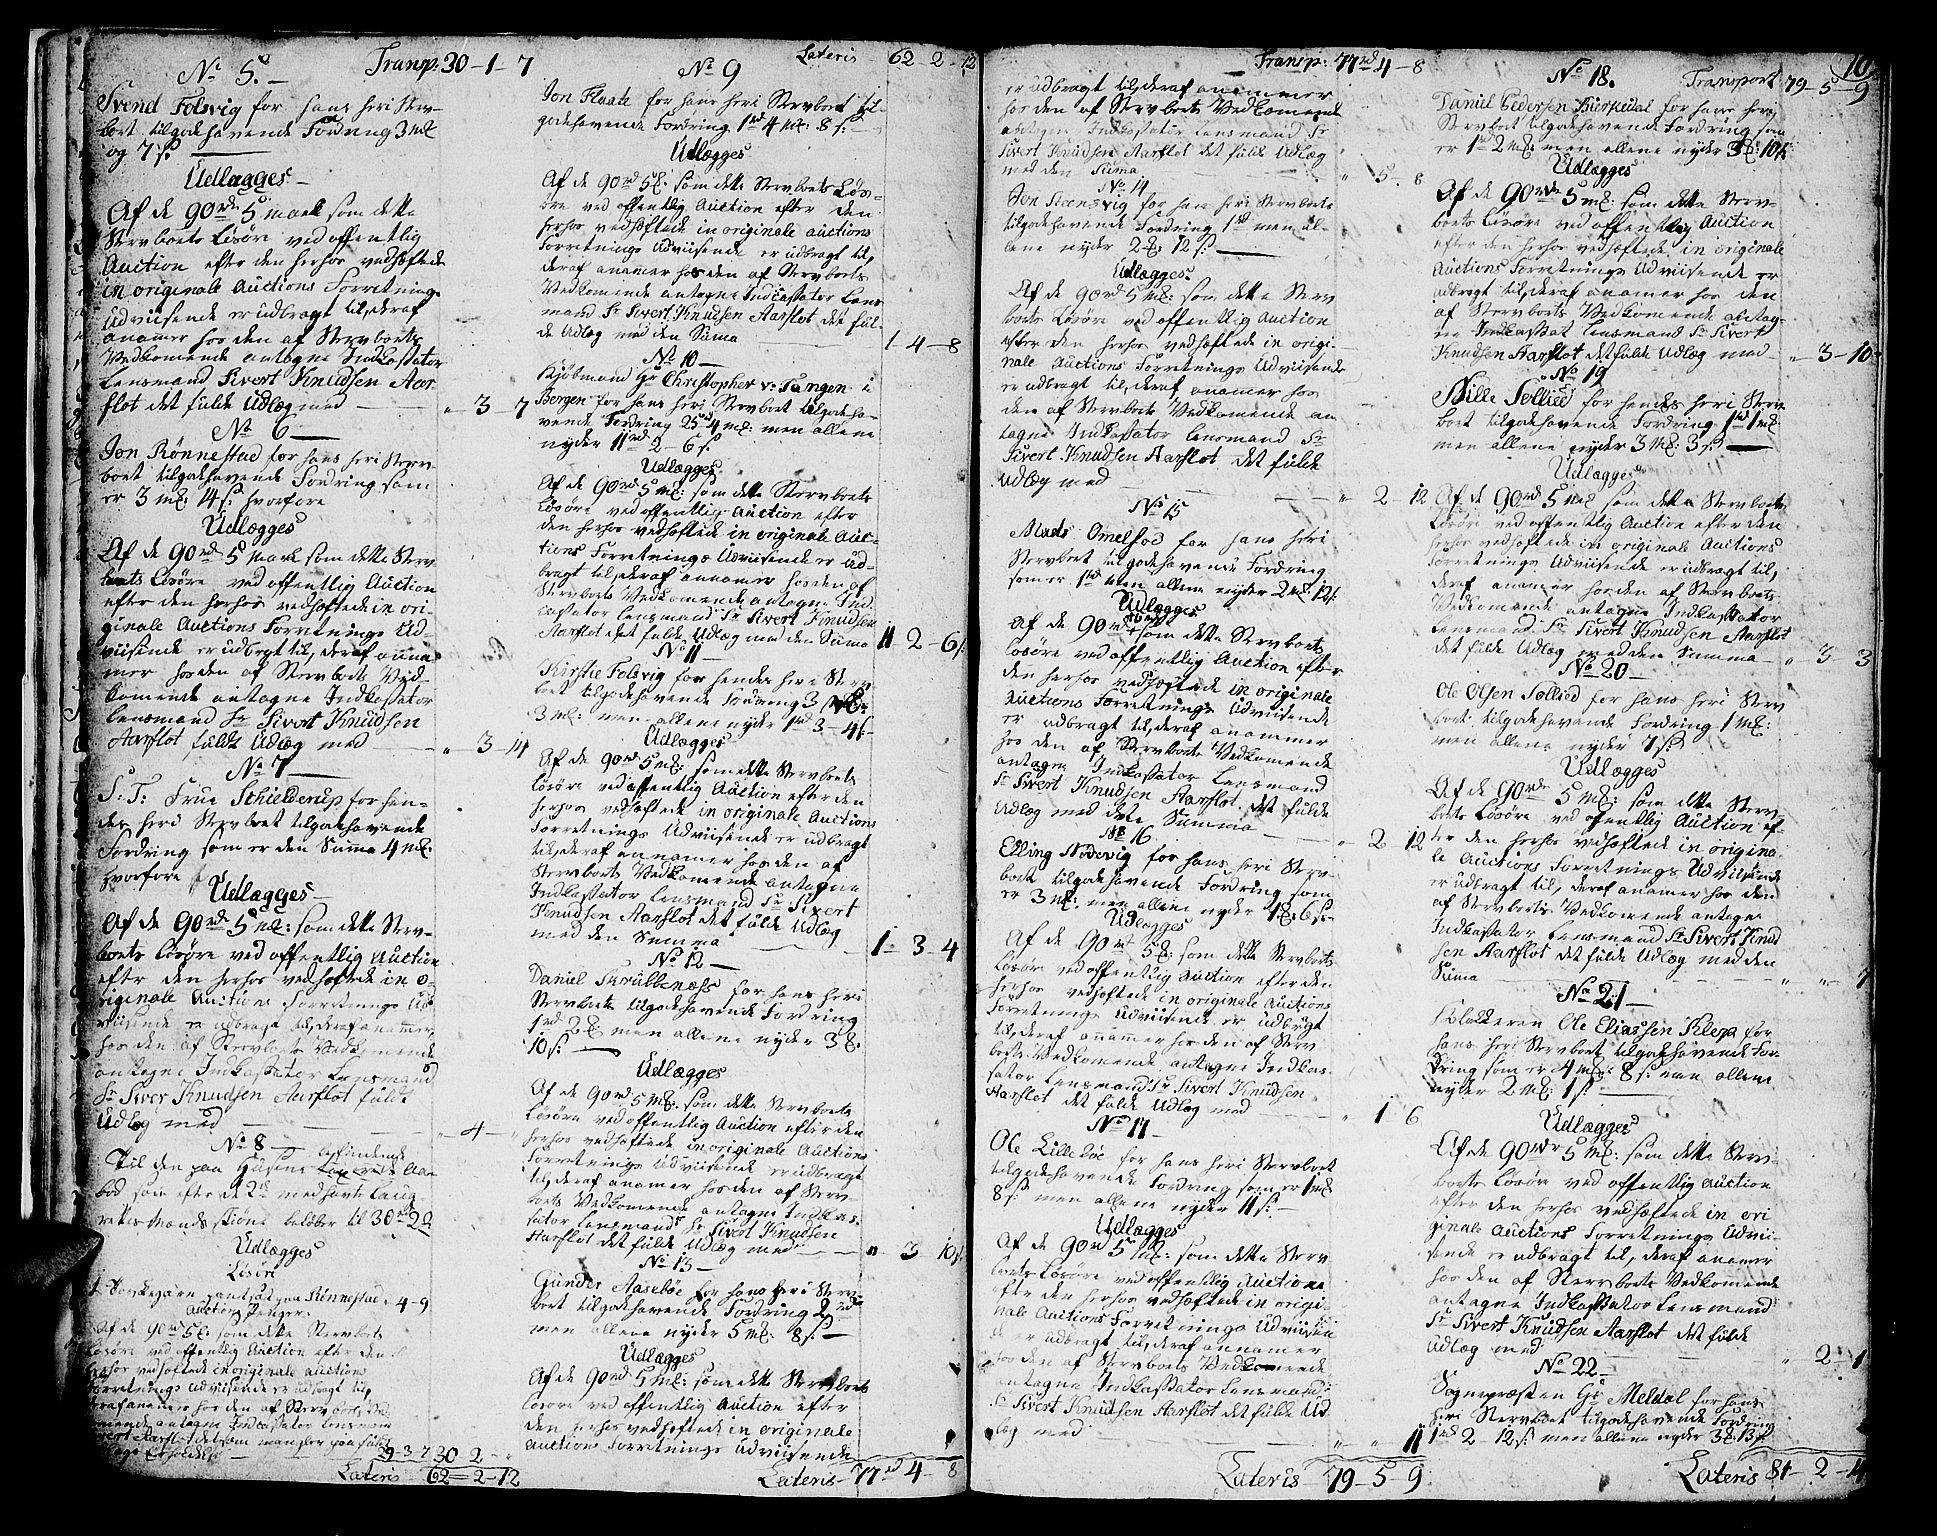 Transp: 30-1-7
No 5.
Svend Folsvig for hans heri Sterv-
boet tilgodehavende Fordring 3 Mk
og 7 s.
Udlægges
Af de 90 rd 5 mark som dette
Stervboets Løsøre ved offentlig
Auction efter den herhos vedhæftede
in originale Auctions Forretnings
Udviisende er udbragt til, deraf
anamer hos den af Stervboets
Vedkomende antagne Indkassator
Lensmand Sivert Knudsen Aar-
sflot det fulde Udlæg med " 3-7
No 6
Jon Rønnestad for hans heri Sterv-
boet tilgodehavende Fordring som
er 3 mk: 14 s: hvorfore
Udlægges
Af de 90 rd 5 Mark som dette Sterv
boets Løsøre ved offentlig Auction
efter den herhos vedhæftede in ori-
ginale Auctions Forretnings Ud-
viisende er udbragt til, deraf anna
mer hos den af Stervboets Ved-
komende antagne Indkassator
Lensmand Sr Sivert Knudsen
Aarsflot fulde Udlæg med " 3-14
No 7
S: T: Frue Schielderup for hen-
des heri Stervboet tilgodehavende
Fordring som er den Suma 4 mk:
hvorfore
Udlægges
Af de 90 rd 5 mk: som dette Sterv-
boets Løsøre ved offentlig Auction
efter den herhos vedhæftede in o-
riginale Auctions Forretnings Ud
viisende er udbragt til, deraf anammer
hos den af Stervboets Vedkomende
antagne Indkassator Lensmand
Sr Siver Knudsen Aarsflot fulde
Udlæg med " 4 "
No 8
Til den paa Husene befindende Aae
bod som efter de 2de medhavte Laug
rettes Mænds skiøn beløber til 30 rd 2
Udlægges
Løsøre
Rønnestad 4-9
Auctions Penger
Af de 90 rd 5 mk: som dette Stervboets
Løsøre ved offentlig Auction efter den
herhos vedhæftede in originale auctions
Forretnings Udviisende er udbragt til,
deraf anamer hos den af Stervboets Ved
komende antagne Indkassator Lensmand
Sivert Aarsflot det som mangler paa fuldt
29 3 7 30 2
Lateris 62-2-12
No 9 Lateris 62-2-12
Jon Flaate for hans heri Stervboet til-
godehavende Fordring 1 rd 4 Mk: 8 s:
Udlægges
Af de 90 rd 5 mk: som dette Stervboets Løs-
øre ved offentlig Auction efter den
herhos vedhæftede in originale auctions
Forretnings Udviisende er udbragt til,
deraf anamer hos den af Stervboets
Vedkomende antagne Indcassator Lens
mand Sr Sivert Knudsen Aarsflot det ful-
de Udlæg med den Suma 1 4-8
No 10
Kjøbmand Hr Christopher v: Tangen i
Bergen for hans heri Stervboet tilgodeha-
vende Fordring 25 rd 4 mk: men allene
nyder 11 rd 2-6 s:
Udlægges
Af de 90 rd 5 mk: som dette Stervboets
Løsøre ved offentlig Auction efter
den herhos vedhæftede in originale Auc-
tions Forretnings Udviisende er ud-
bragt til, deraf annamer hos den af
Stervboets Vedkomende antagne Ind-
cassator Lensmand Sr Sivert Knudsen
Aarsflot det fulde Udlæg med den Suma 11 2-6 s.
No 11
Kirstie Folsvig for hendes heri Sterv
boet tilgodehavende Fordring 3
3 mk: men allene nyder 1 rd 3-4 s
Udlægges
Af de 90 rd 5 mk: som dette Stervboets
Løsøre ved offentlig Auction efter den
herhos vedhæftede in originale Auctions
Forretnings Udviisende er udbragt
til, deraf annamer hos den af
Stervboets Vedkomende antagne
Indkassator Lensmand Sr Sivert
Knudsen Aarsflot det fulde Udlæg
med den Summa 1-3-4
No 12
Daniel Skrubbenæss for hans heri
Stervboet tilgodehavende Fordring
1 rd 2 mk men allene nyder 3 mk:
10 s:
Udlægges
Af de 90 rd 5 mk: som dette Stervboets
Løsøre ved offentlig Auction efter den
herhos vedhæftede in originale Auctions
Forretnings Udviisende er udbragt
til, deraf anamer hos den af Sterv-
boets Vedkomende antagne Indkas-
sator Lensmand Sr Sivert Knudsen
Aarsflot det fulde Udlæg med " 3 10 s.
No 13
Gunder Aasebøe for hans heri Sterv-
boet tilgodehavende Fordring 2 rd
men allene nyder 5 mk: 8 s:
Udlægges
Af de 90 rd 5 Mk: som dette Stervboets
Løsøre ved offentlig Auction efter
den herhos vedhæftede in originale
Auctions Forretnings Udviisende
Lateris 77 rd 4-8
Transp: 77 rd 4-8
er udbragt til, deraf anammer
hos den af Stervboets Vedkomende
antagne Indkassator Lensmand Sr
Sivert Knudsen Aarsflot det fulde Udlæg
med den Suma " 5. 8
No 14
Jon Steensvig for hans heri Stervboets
tilgodehavende Fordring 1 rd men al-
lene nyder 2 mk: 12 s:
Udlægges
Af de 90 rd 5 mk: som dette Sterv
boets Løsøre ved offentlig Auction
efter den herhos vedhæftede in origi-
nale Auctions Forretnings Udviisende
er udbragt til, deraf anamer hos
den af Stervboets Vedkomende an-
tagne Indkassator Lensmand Sr
Sivert Knudsen Aarsflot det fulde
Udlæg med " 2-12
No 15
Mads Omelsoe for hans heri
Stervboet tilgodehavende Fordring
som er 1 rd men allene nyder 2 mk 12 s.
Udlægges
Af de 90 rd som dette Stervboets
Løsøre ved offentlig Auction efter
den herhos vedhæftede in originale
Auctions Forretnings Udviisende
er udbragt til, deraf anammer
hos den af Stervboets Vedkomende
antagne Indkassator Lensmand
Sr Sivert Knudsen Aarsflot det fulde
Udlæg med den Summa " 2 12
No 16
Elling Nødevig for hans heri Sterv-
boet tilgodehavende Fordring som
er 3 mk: men allene nyder 1 mk: 6 s:
Udlægges
Af de 90 rd 5 mk: som dette Stervboets
Løsøre ved offentlig Auction efter den
herhos vedhæftede in originale Auctions
Forretnings Udviisende er udbragt
til, deraf anammer hos den af Sterv
boets Vedkomende antagne Indkas-
sator Lensmand Sr Sivert Knudsen
Aarsflot det fulde Udlæg med " 1 6
No 17
Ole Lillebøe for hans heri Stervboet
tilgodehavende Fordring som er 1 mk
8 s: men allene nyder 11 s:
Udlægges
Af de 90 rd 5 mk: som dette Sterv
boets Løsøre ved offentlig Auctione
efter den herhos vedhæftede in origi-
nale Auctions Forretnings Udviisen
de er udbragt til, deraf annamer
hos den af Stervboets Vedkomende
antagne Indkassator Lensmand
Sr Sivert Knudsen Aarsflot det fulde Ud
læg med " " 11
Lateris 79-5-9
10
No 18. Transport 79-5-9
Daniel Pedersen Biørkedal for hans heri
Stervboet tilgodehavende Fordring som
er 1 rd 2 mk: men allene nyder 3 mk: 10 s
Udlægges
Af de 90 rd 5 mk: som dette Sterv-
boets Løsøre ved offentlig Auction
efter den herhos vedhæftede in originale
Auctions Forretnings Udviisende er
udbragt til, deraf anamer hos den
af Stervboets Vedkomende antag-
ne Indkassat Lensmand Sr Sivert
Knudsen Aarsflot det fulde Udlæg med " 3-10
No 19
Sille Sollied for hendes heri Sterv
boet tilgodehavende Fordring 1 rd 1 mk
men allene nyder 3 Mk: 3 s:
Udlægges
Af de 90 rd 5 mk som dette Stervboets
Løsøre ved offentlig Auction efter den
herhos vedhæftede in originale Auctions
Forretnings Udviisende er udbragt til,
deraf anamer hos den af Stervboets
Vedkomende antagne Indkassator
Lensmand Sr Sivert Knudsen Aarsflot
det fulde Udlæg med den Summa " 3 3
No 20
Ole Olsen Sollied for hans heri Sterv
boet tilgodehavende Fordring 1 Mk:
men allene nyder 7 s:
Udlægges
Af de 90 rd 5 Mk: som dette Sterv-
boets Løsøre ved offentlig Auction ef-
ter den herhos vedhæftede in origina-
le Auctions Forretnings Udviisende
er udbragt til, deraf anamer hos den
af Stervboets Vedkomende antagne
Indkassator Lensmand Sr Sivert Knud
sen Aarsflot det fulde Udlæg med den
Suma " " 7
No 21
Klokkeren Ole Eliassen Klepp for
hans heri Stervboet tilgodehavende For-
dring som er 4 mk: 8 s: men allene
nyder 2 Mk: 1 s:
Udlægges
Af de 90 rd 5 Mk: som dette Sterv-
boets Løsøre ved offentlig Auction
efter den herhos vedhæftede in ori
ginale Auctions Forretnings Udvii-
sende er udbragt til, deraf anamer
hos den af Stervboets Vedkomende
antagne Indkassator Lensmand
Sr Sivert Knudsen Aarsflot det fulde
Udlæg med " 2-1
No 22
Sognepræsten Hr Meldal for hans
heri Stervboet tilgodehavende Fordring
1 rd 2 12 s: men allene nyder 3 mk: 13 s
Lateris 81-2-4